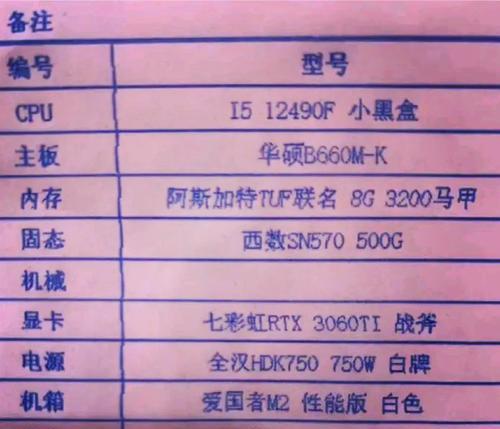 备注
编号 型号
CPU I5 12490F 小黑盒
主板 华硕B660M-K
内存 阿斯加特TUF联名 8G 3200马甲
固态 西数SN570 500G
机械
显卡 七彩虹RTX 3060TI 战斧
电源 全汉HDK750 750W 白牌
机箱 爱国者M2 性能版 白色